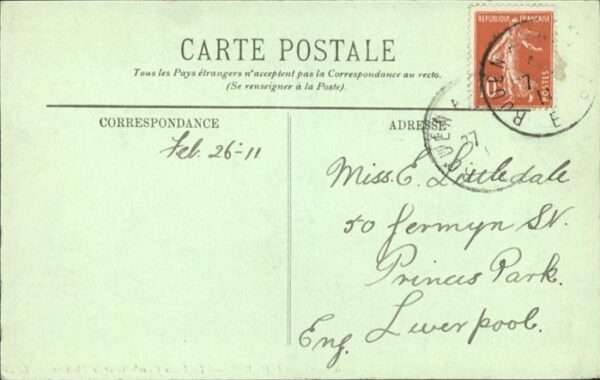 REPUBLIQUE FRANÇAISE
10
POSTES
CARTE POSTALE
Tous les Pays étrangers n'acceptent pas la Correspondance au recto.
(Se renseigner à la Poste).
CORRESPONDANCE
ADRESSE
Feb. 26-11
27
Miss. E. Littledale
50 Jermyn St.
Princes Park.
Liverpool.
Eng.